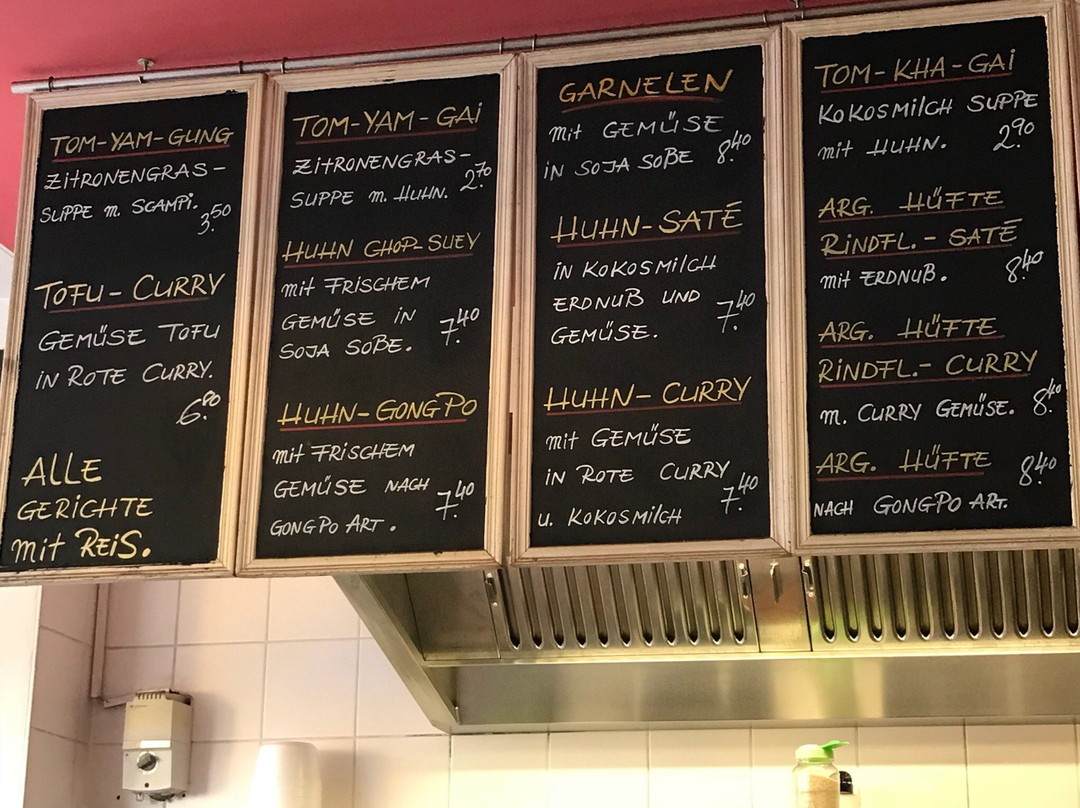 TOM-YAM-GUNG
ZITRONENGRAS-
SUPPE m. SCAMPI.
3.50
TOFU-CURRY
GEMÜSE TOFU
IN ROTE CURRY.
6.80
ALLE
GERICHTE
mit REIS.
TOM-YAM-GAI
ZITRONENGRAS-
SUPPE m. HUHN. 2.70
HUHN CHOP-SUEY
mit FRISCHEM
GEMÜSE IN
SOJA SOßE. 7.40
HUHN-GONGPO
mit FRISCHEM
GEMÜSE NACH
GONGPO ART. 7.40
GARNELEN
mit GEMÜSE
IN SOJA SOßE 8.40
HUHN-SATÉ
IN KOKOSMILCH
ERDNUß UND
GEMÜSE. 7.40
HUHN-CURRY
mit GEMÜSE
IN ROTE CURRY
u. KOKOSMILCH 7.40
TOM-KHA-GAI
KOKOSMILCH SUPPE
mit HUHN. 2.90
ARG. HÜFTE
RINDFL.-SATÉ
mit ERDNUß. 8.40
ARG. HÜFTE
RINDFL.-CURRY
m. CURRY GEMÜSE. 8.40
ARG. HÜFTE
NACH GONGPO ART. 8.40